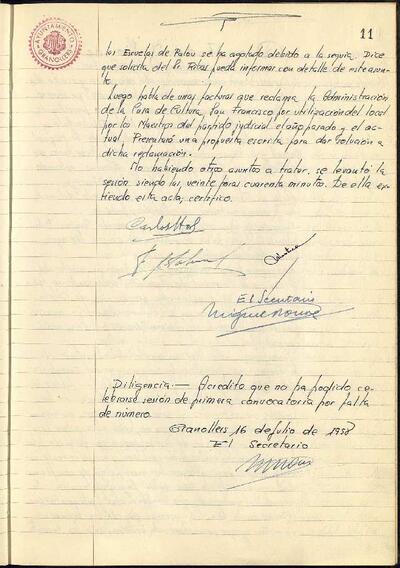 11
AJUNTAMENT
GRANOLLERS
las Escuelas de Palou se ha agotado debido a la sequia. Dice
que solicita del Sr. Ribas pueda informar con detalle de este asun-
to.
Luego habla de unas facturas que reclama la Administración
de la Casa de Cultura, San Francisco por utilización del local
por los Maestros del partido judicial el año pasado y el ac-
tual. Presentará una propuesta escrita para dar solución a
dicha reclamación.
No habiendo otros asuntos a tratar, se levantó la
sesión siendo las veinte horas cuarenta minutos. De ella ex-
tiendo esta acta, certifico.
El Secretario
Diligencia.— Acredito que no ha podido ce-
lebrarse sesión de primera convocatoria por falta
de número.
Granollers 16 de Julio de 1958
El Secretario